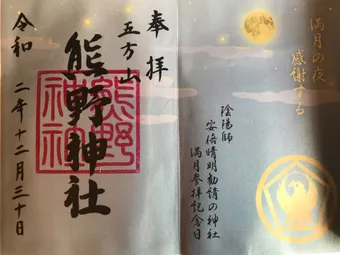 満月の夜
感謝する
陰陽師
安倍晴明勧請の神社
満月参拝記念日
奉拝
五方山
熊野神社
熊野
神社
令和二年十二月三十日